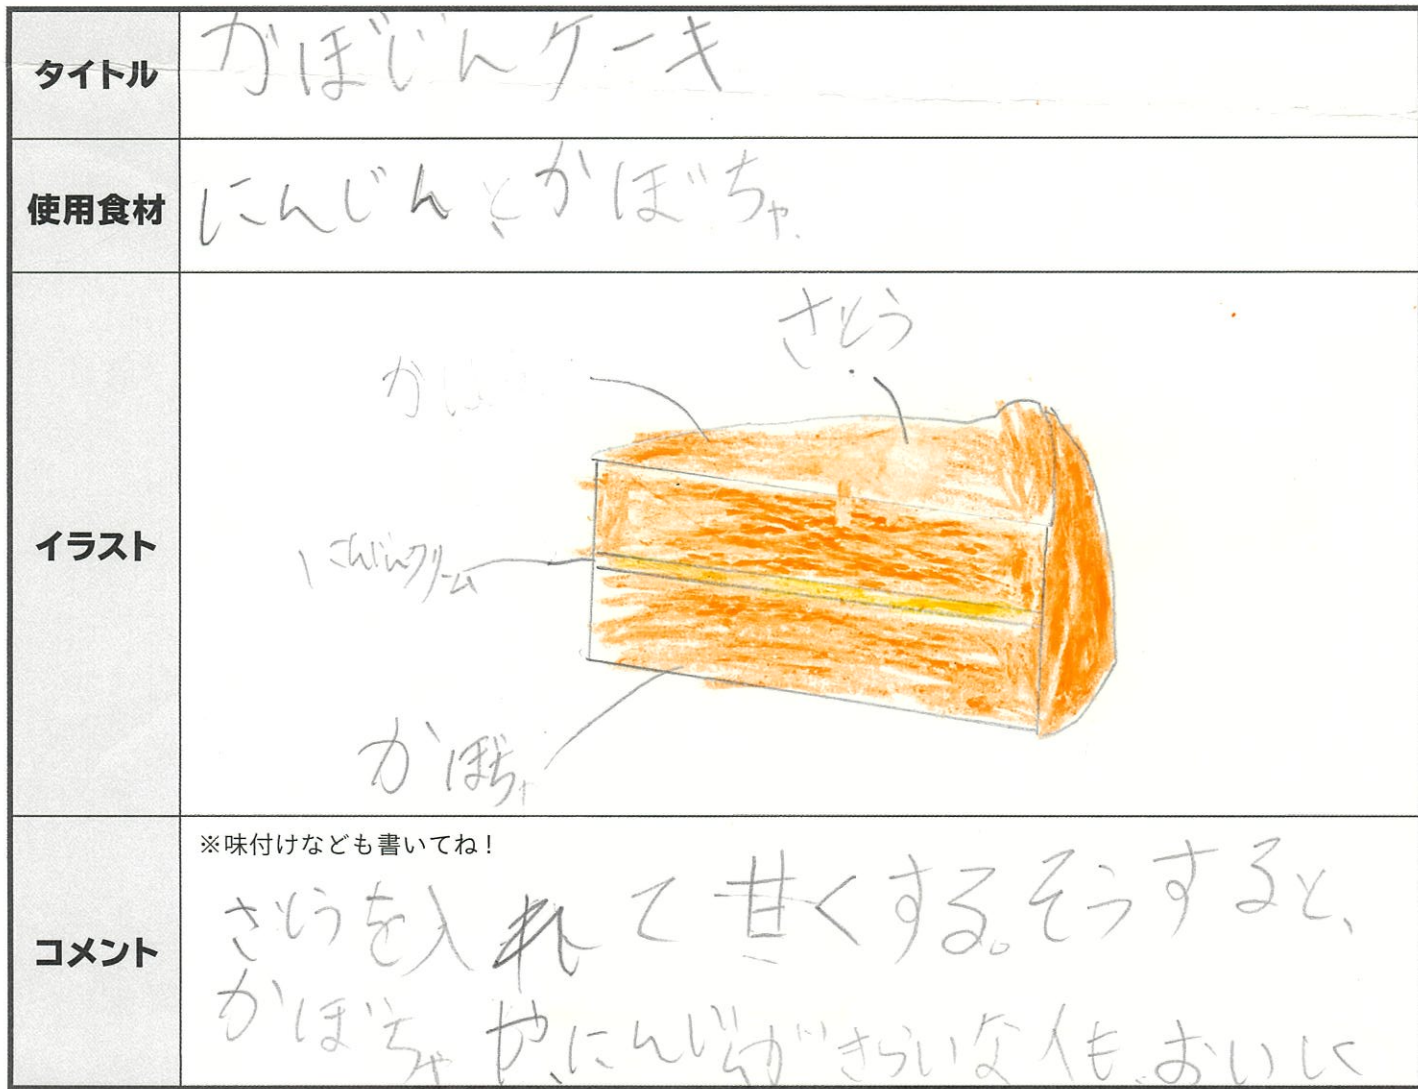 タイトル
かぼじんケーキ
使用食材
にんじんとかぼちゃ
イラスト
さとう
にんじんクリーム
かぼちゃ
コメント
※味付けなども書いてね!
さとうを入れて甘くする。そうすると、
かぼちゃや、にんじんがきらいな人も、おいしく